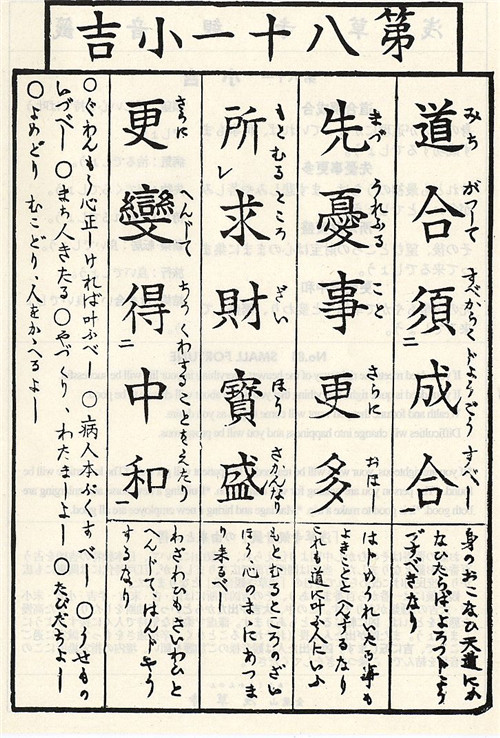 第八十一小吉
道合須成合
みち がつして すべからく
先憂事更多
まづ うれふる こと さらに おほし
所求財寶盛
もとむるところ ざい ほ さかんなり
更變得中和
さらに へんじて ちうくわすることをえたり
身のおこなひ天道にか
なひたらば、よろづ
すべきなり
はじめうれひたる事も
よきことに
これも道に叶ふ人にいふ
もとむるところのざい
ほう心のまゝにあつま
り来るべし
わざわひもさいわひと
へんじてはんじやう
するなり
○ぐわんもう心正しければ叶ふべし ○病人本ぶくすべし ○うせもの
いづべし ○まち人きたる ○やづくり、わたましよし ○たびだちよし
○よめどり むこどり、人をかゝへるよし